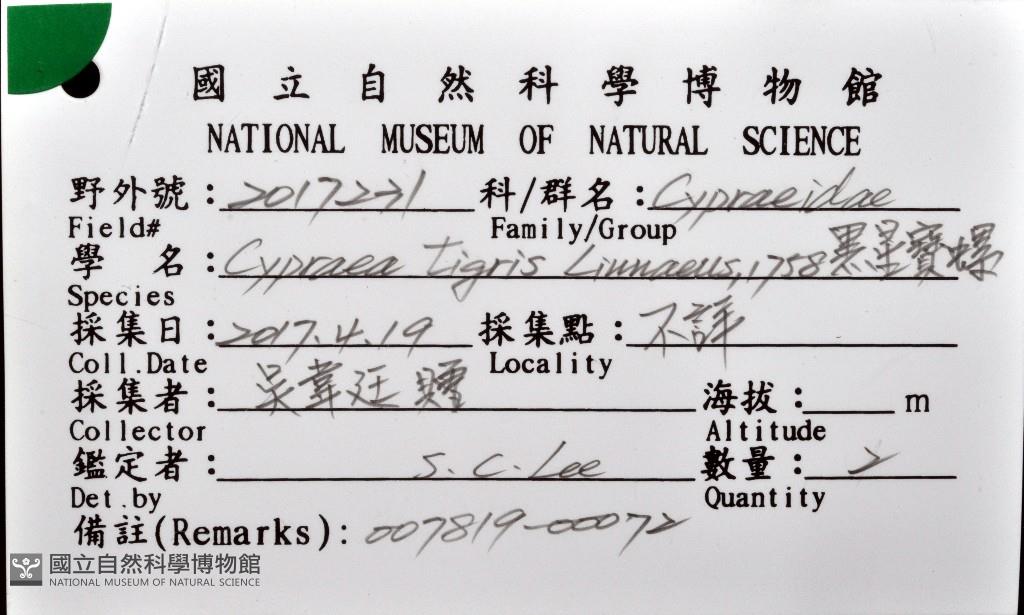 國立自然科學博物館
NATIONAL MUSEUM OF NATURAL SCIENCE
野外號：2017231 科/群名：Cypraeidae
Field# Family/Group
學 名：Cypraea tigris Linnaeus, 1758 黑星寶螺
Species
採集日：2017.4.19 採集點：不詳
Coll.Date Locality
採集者：吳韋廷 贈 海拔： m
Collector Altitude
鑑定者：S. C. Lee 數量：2
Det.by Quantity
備註(Remarks)：007819-00072
國立自然科學博物館
NATIONAL MUSEUM OF NATURAL SCIENCE